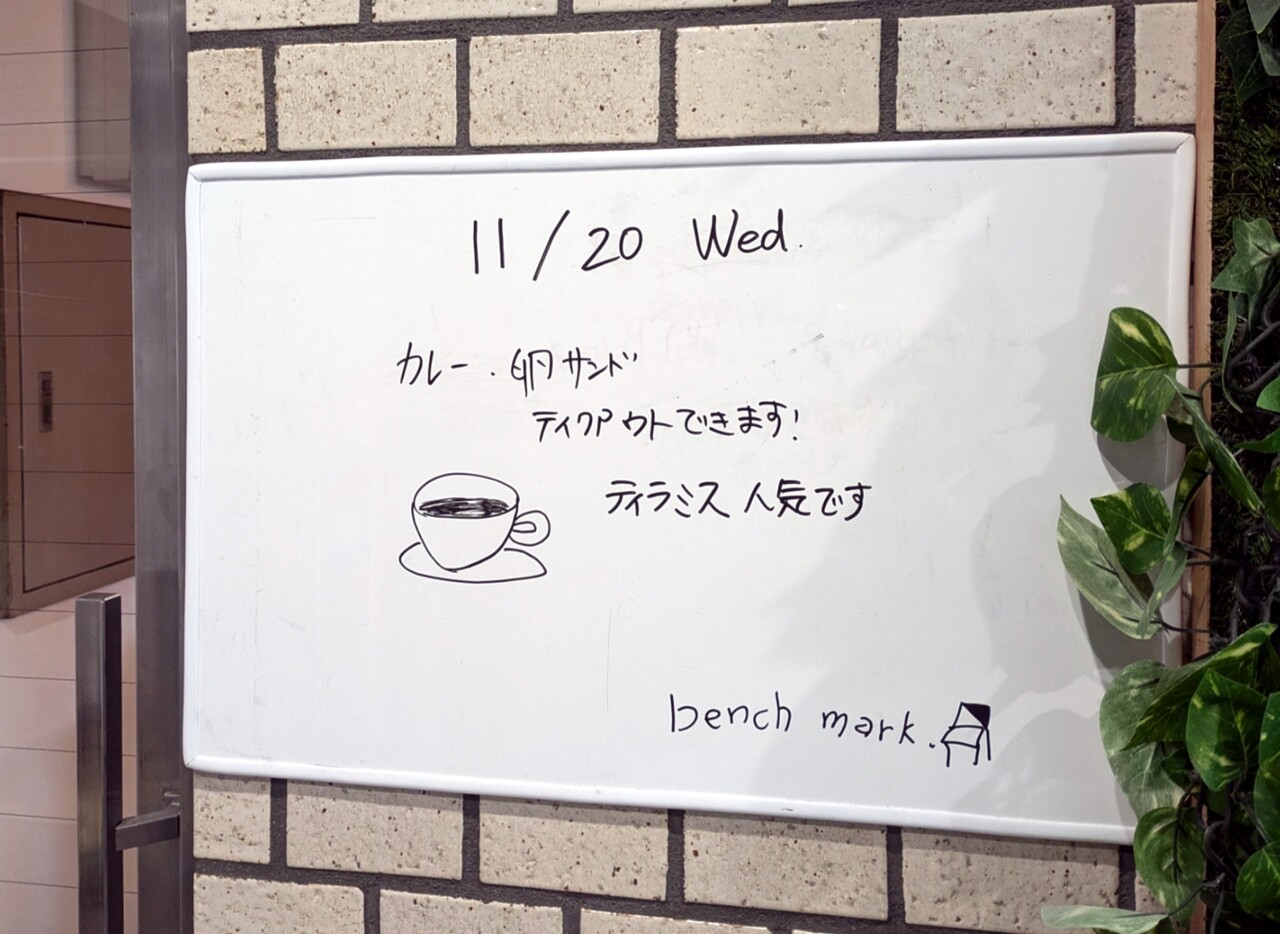 11/20 Wed.
カレー.卵サンド
テイクアウトできます!
ティラミス 人気です
bench mark.